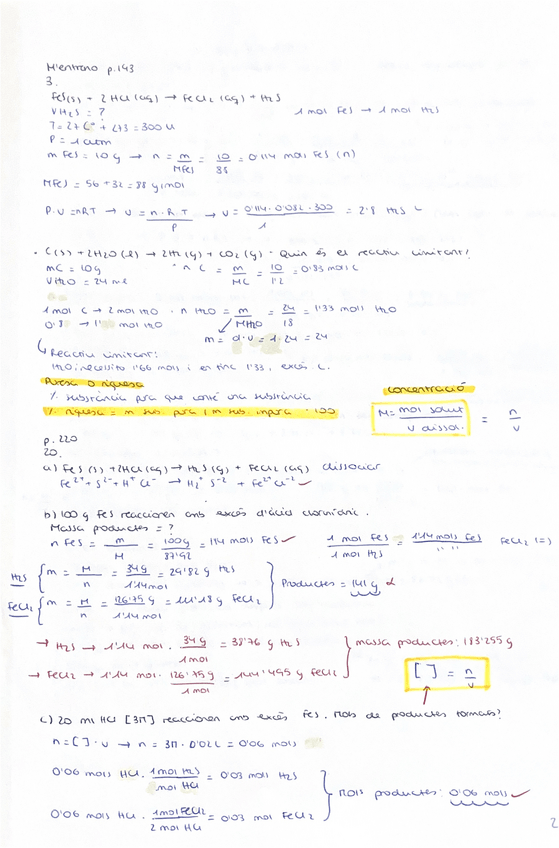 M'entreno p.143
3.
FeS(s) + 2HCl(aq) → FeCl2 (aq) + H2S
V H2S = ? 1 mol FeS → 1 mol H2S
T = 27 Cº + 273 = 300 K
P = 1 atm
m FeS = 10 g → n = m/MFeS = 10/88 = 0'114 mols FeS (n)
MFeS = 56 + 32 = 88 g/mol
P·V = nRT → V = n·R·T/P → V = 0'114·0'082·300/1 = 2'8 H2S
· C(s) + 2H2O(l) → 2H2(g) + CO2(g) · Quin és el reactiu limitant?
mC = 10g · n C = m/MC = 10/12 = 0'83 mol C
V H2O = 24 ml
1 mol C → 2 mol H2O · n H2O = m/MH2O = 24/18 = 1'33 mols H2O
0'8 → 1' mol H2O
m = d·v = 1·24 = 24
Reactiu limitant:
H2O: necessito 1'66 mols i en tinc 1'33, excés C.
Puresa o riquesa
% substància pura que conté una substància
% riquesa = m sub. pura / m sub. impura · 100
concentració
M = mol solut / V dissol. = n/V
p. 220
20.
a) FeS (s) + 2HCl(aq) → H2S(g) + FeCl2 (aq) dissociar
Fe2+ S2- + H+ Cl- → H2+ S-2 + Fe2+ Cl-
b) 100 g FeS reaccionen amb excés d'àcid clorhídric.
Massa productes = ?
n FeS = m/M = 100g/87'92 = 1'14 mols FeS 1 mol FeS/1 mol H2S = 1'14 mols FeS/" " FeCl2 (=)
H2S m = M/n = 34g/1'14mol = 29'82 g H2S
FeCl2 m = M/n = 126'75 g/1'14 mol = 111'18 g FeCl2
Productes = 141 g
→ H2S → 1'14 mol · 34 g/1mol = 38'76 g H2S
→ FeCl2 → 1'14 mol · 126'75g/1 mol = 144'495 g FeCl2
massa productes: 183'255 g
[ ] = n/v
c) 20 ml HCl [3M] reaccionen amb excés FeS. Mols de productes formats?
n = [ ] · v → n = 3M · 0'02L = 0'06 mols
0'06 mols HCl · 1mol H2S/mol HCl = 0'03 mols H2S
0'06 mols HCl · 1mol FeCl2/2 mol HCl = 0'03 mol FeCl2
Mols productes: 0'06 mols
2